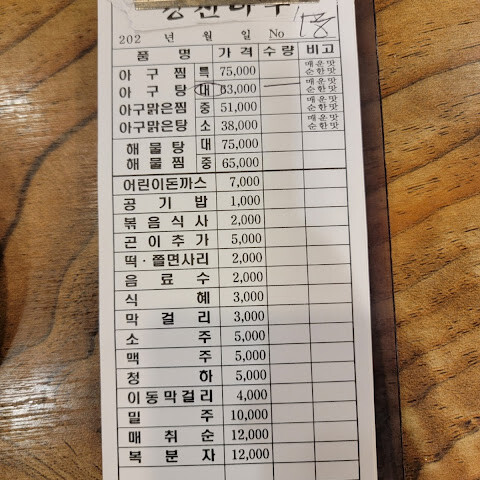 202 년 월 일 No
품 명 가 격 수 량 비 고
아 구 찜 특 75,000 매운맛 순한맛
아 구 탕 대 63,000 매운맛 순한맛
아구맑은찜 중 51,000 매운맛 순한맛
아구맑은탕 소 38,000 매운맛 순한맛
해 물 탕 대 75,000
해 물 찜 중 65,000
어린이돈까스 7,000
공 기 밥 1,000
볶음식사 2,000
곤이추가 5,000
떡·쫄면사리 2,000
음 료 수 2,000
식 혜 3,000
막 걸 리 3,000
소 주 5,000
맥 주 5,000
청 하 5,000
이동막걸리 4,000
밀 주 10,000
매 취 순 12,000
복 분 자 12,000